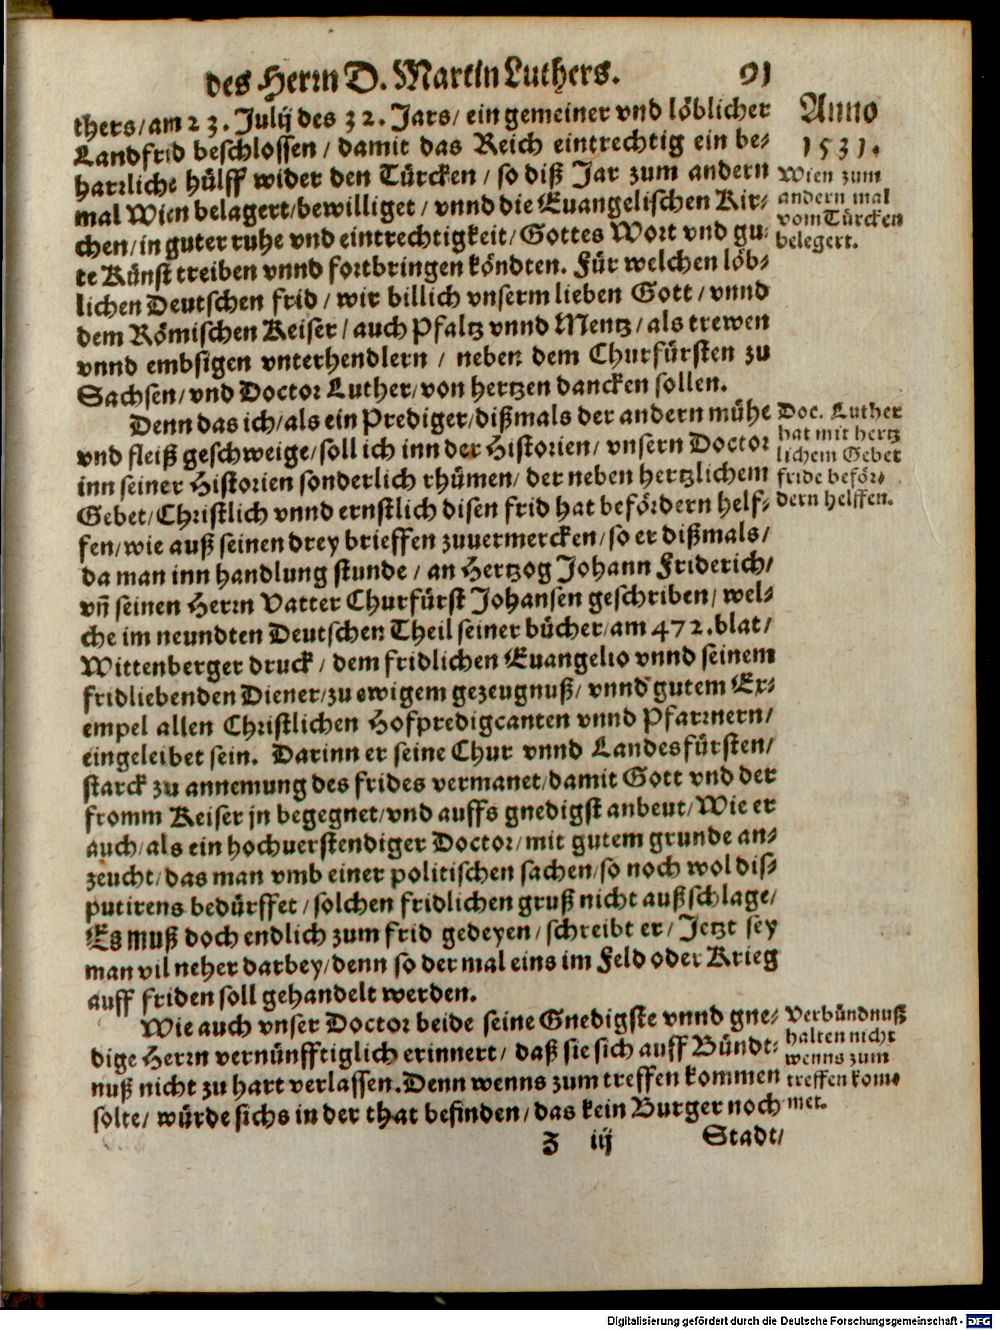 des Herrn D. Martin Luthers. 91
thers/ am 23. Julij des 32. Jars/ ein gemeiner vnd löblicher
Landfrid beschlossen / damit das Reich eintrechtig ein be-
harrliche hülff wider den Türcken / so diß Jar zum andern
mal Wien belagert/ bewilliget / vnnd die Euangelischen Kir-
chen/ in guter ruhe vnd eintrechtigkeit/ Gottes Wort vnd gu-
te Künst treiben vnnd fortbringen köndten. Für welchen löb-
lichen Deutschen frid / wir billich vnserm lieben Gott / vnnd
dem Römischen Keiser / auch Pfaltz vnnd Mentz / als trewen
vnnd embsigen vnterhendlern / neben dem Churfürsten zu
Sachsen/ vnd Doctor Luther/ von hertzen dancken sollen.
Denn das ich/ als ein Prediger/ dißmals der andern mühe
vnd fleiß geschweige/ soll ich inn der Historien/ vnsern Doctor
inn seiner Historien sonderlich rhümen/ der neben hertzlichem
Gebet/ Christlich vnnd ernstlich disen frid hat befördern helf-
fen/ wie auß seinen drey brieffen zuuermercken/ so er dißmals/
da man inn handlung stunde / an Hertzog Johann Friderich/
vñ seinen Herrn Vatter Churfürst Johansen geschriben/ wel-
che im neundten Deutschen Theil seiner bücher/ am 472. blat/
Wittenberger druck / dem fridlichen Euangelio vnnd seinem
fridliebenden Diener/ zu ewigem gezeugnuß/ vnnd gutem Ex-
empel allen Christlichen Hofpredigcanten vnnd Pfarrnern/
eingeleibet sein. Darinn er seine Chur vnnd Landesfürsten/
starck zu annemung des frides vermanet/ damit Gott vnd der
fromm Keiser jn begegnet/ vnd auffs gnedigst anbeut/ Wie er
auch/ als ein hochuerstendiger Doctor/ mit gutem grunde an-
zeucht/ das man vmb einer politischen sachen/ so noch wol dis-
putirens bedürffet / solchen fridlichen gruß nicht außschlage/
Es muß doch endlich zum frid gedeyen / schreibt er / Jetzt sey
man vil neher darbey/ denn so der mal eins im Feld oder Krieg
auff friden soll gehandelt werden.
Wie auch vnser Doctor beide seine Gnedigste vnnd gne-
dige Herrn vernünfftiglich erinnert / daß sie sich auff Bündt-
nuß nicht zu hart verlassen. Denn wenns zum treffen kommen
solte/ würde sichs in der that befinden/ das kein Burger noch
Z iij Stadt/
Anno
1531.
Wien zum
andern mal
vom Türcken
belegert.
Doc. Luther
hat mit hertz
lichem Gebet
fride beför-
dern helffen.
Verbündnuß
halten nicht
wenns zum
treffen kom-
met.
Digitalisierung gefördert durch die Deutsche Forschungsgemeinschaft - DFG